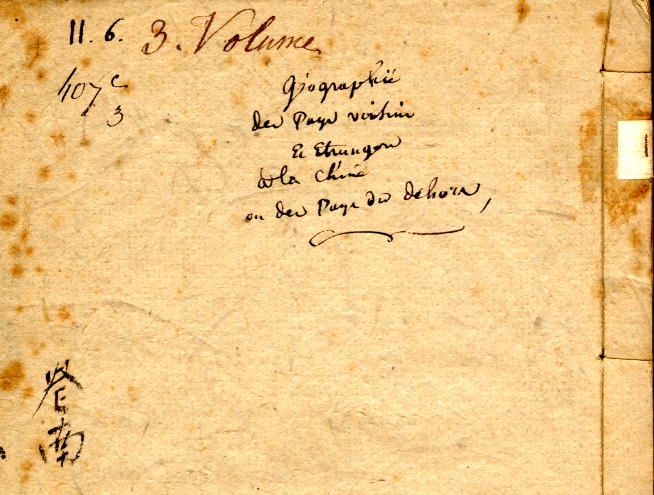 11. 6. 3. Volume
407 c
3
Géographie
des Pays voisins
Et Etrangers
à la Chine
ou des Pays du dehors,
南